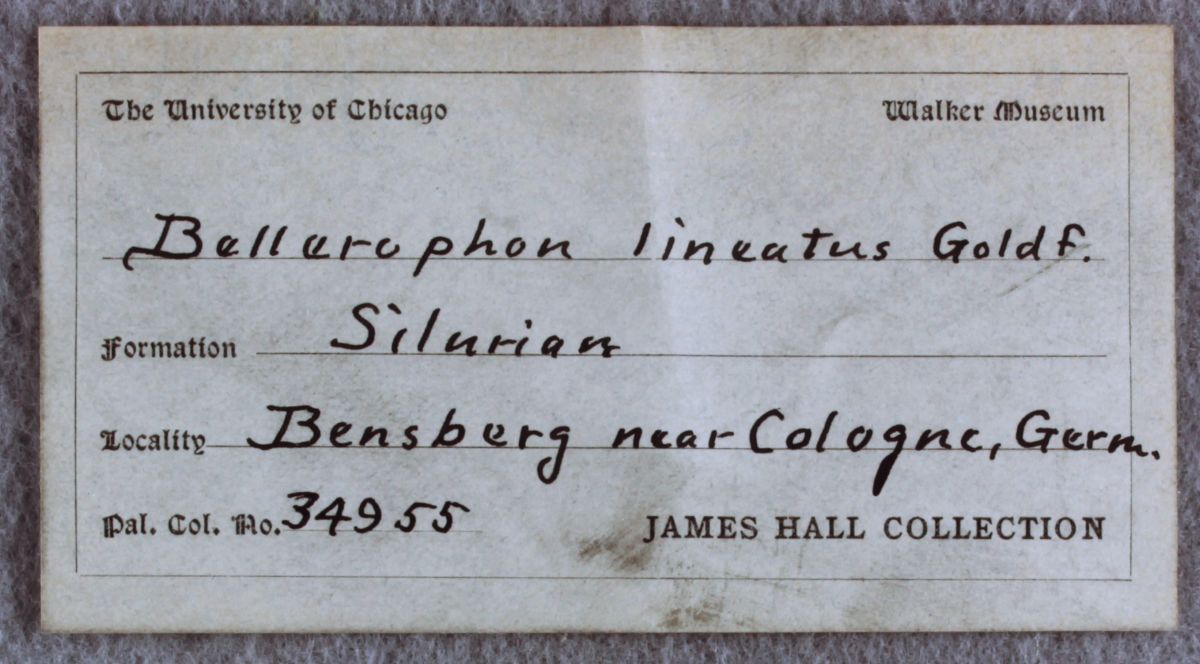 The University of Chicago Walker Museum
Bellerophon lineatus Goldf.
Formation Silurian
Locality Bensberg near Cologne, Germ.
Pal. Col. No. 34955 JAMES HALL COLLECTION